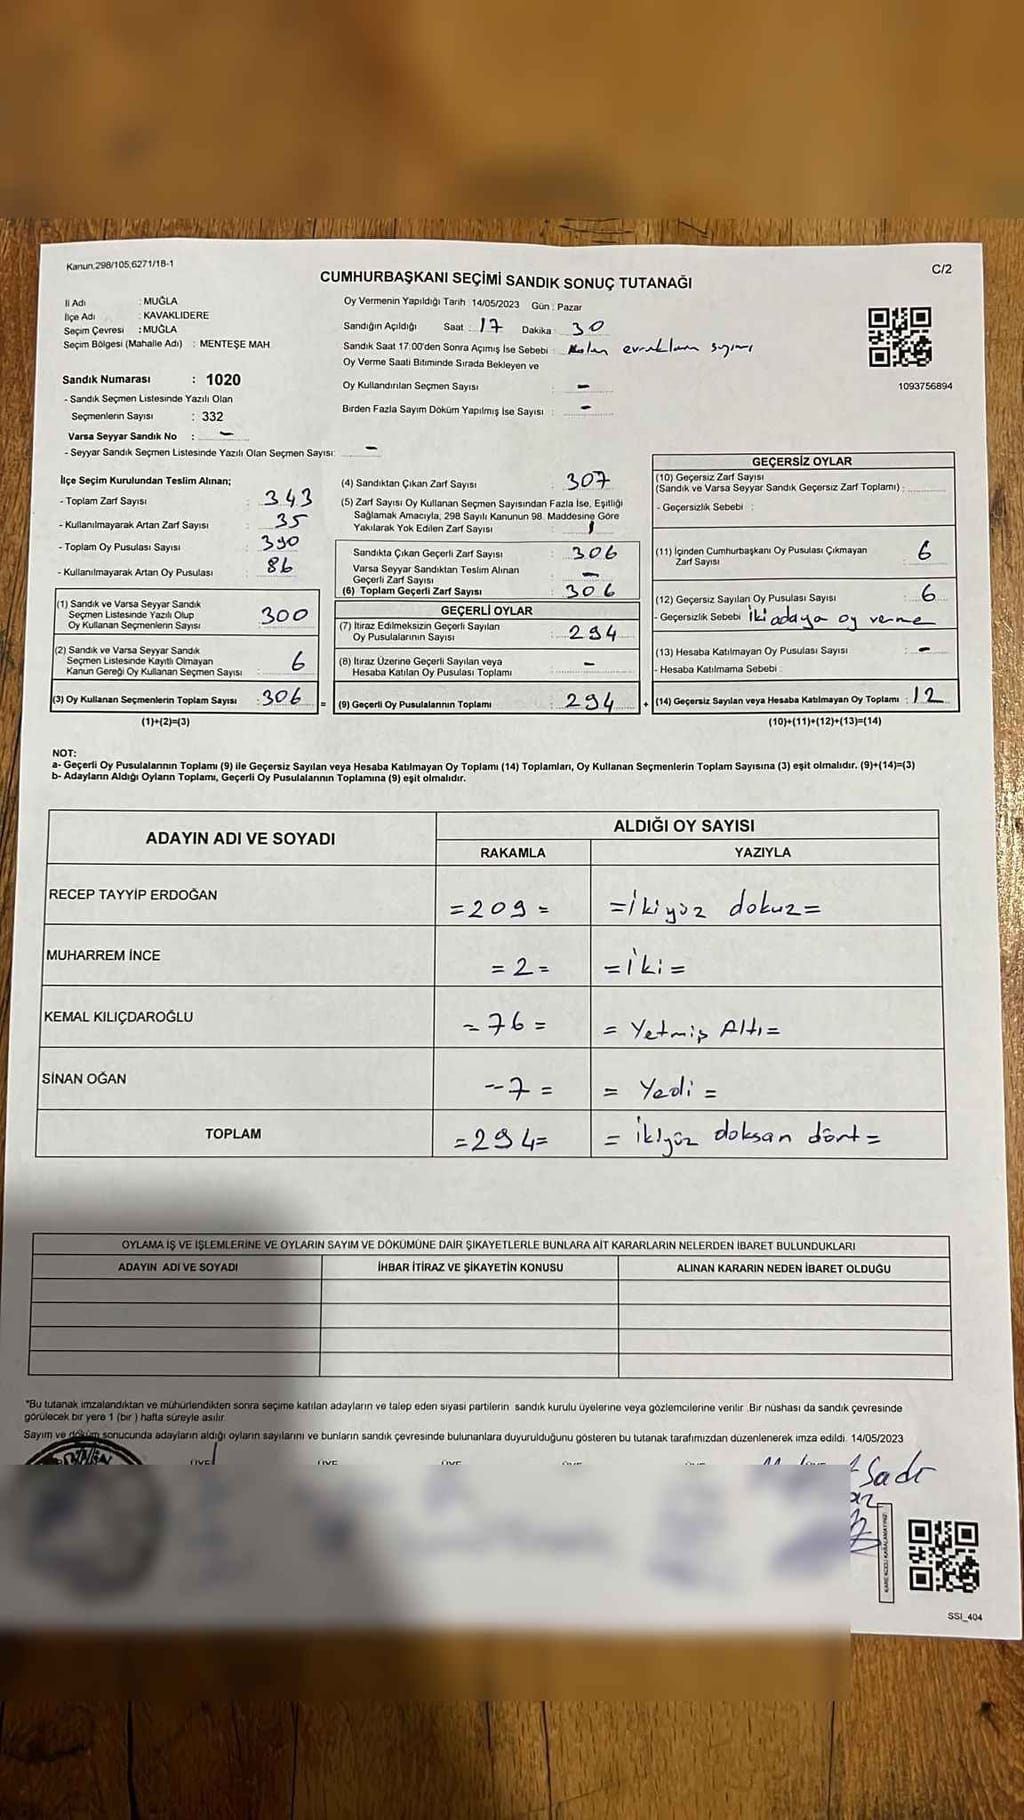 Kanun.298/105,6271/18-1
C/2
CUMHURBAŞKANI SEÇİMİ SANDIK SONUÇ TUTANAĞI
İl Adı : MUĞLA
İlçe Adı : KAVAKLIDERE
Seçim Çevresi : MUĞLA
Seçim Bölgesi (Mahalle Adı) : MENTEŞE MAH.
Sandık Numarası : 1020
- Sandık Seçmen Listesinde Yazılı Olan
Seçmenlerin Sayısı : 332
Varsa Seyyar Sandık No : -
- Seyyar Sandık Seçmen Listesinde Yazılı Olan Seçmen Sayısı: -
Oy Vermenin Yapıldığı Tarih : 14/05/2023 Gün : Pazar
Sandığın Açıldığı Saat : 17 Dakika : 30
Sandık Saat 17:00'den Sonra Açımış İse Sebebi : evrakların sayımı
Oy Verme Saati Bitiminde Sırada Bekleyen ve
Oy Kullandırılan Seçmen Sayısı : -
Birden Fazla Sayım Döküm Yapılmış İse Sayısı : -
1093756894
İlçe Seçim Kurulundan Teslim Alınan;
- Toplam Zarf Sayısı : 343
- Kullanılmayarak Artan Zarf Sayısı : 35
- Toplam Oy Pusulası Sayısı : 390
- Kullanılmayarak Artan Oy Pusulası : 86
(1) Sandık ve Varsa Seyyar Sandık
Seçmen Listesinde Yazılı Olup
Oy Kullanan Seçmenlerin Sayısı : 300
(2) Sandık ve Varsa Seyyar Sandık
Seçmen Listesinde Kayıtlı Olmayan
Kanun Gereği Oy Kullanan Seçmen Sayısı : 6
(3) Oy Kullanan Seçmenlerin Toplam Sayısı : 306 =
(1)+(2)=(3)
(4) Sandıktan Çıkan Zarf Sayısı : 307
(5) Zarf Sayısı Oy Kullanan Seçmen Sayısından Fazla İse, Eşitliği
Sağlamak Amacıyla, 298 Sayılı Kanunun 98. Maddesine Göre
Yakılarak Yok Edilen Zarf Sayısı : 1
Sandıkta Çıkan Geçerli Zarf Sayısı : 306
Varsa Seyyar Sandıktan Teslim Alınan
Geçerli Zarf Sayısı : -
(6) Toplam Geçerli Zarf Sayısı : 306
GEÇERLİ OYLAR
(7) İtiraz Edilmeksizin Geçerli Sayılan
Oy Pusulalarının Sayısı : 294
(8) İtiraz Üzerine Geçerli Sayılan veya
Hesaba Katılan Oy Pusulası Toplamı : -
(9) Geçerli Oy Pusulalarının Toplamı : 294 +
GEÇERSİZ OYLAR
(10) Geçersiz Zarf Sayısı
(Sandık ve Varsa Seyyar Sandık Geçersiz Zarf Toplamı) :
- Geçersizlik Sebebi :
(11) İçinden Cumhurbaşkanı Oy Pusulası Çıkmayan
Zarf Sayısı : 6
(12) Geçersiz Sayılan Oy Pusulası Sayısı : 6
- Geçersizlik Sebebi : İki adaya oy verme
(13) Hesaba Katılmayan Oy Pusulası Sayısı : -
- Hesaba Katılmama Sebebi :
(14) Geçersiz Sayılan veya Hesaba Katılmayan Oy Toplamı : 12
(10)+(11)+(12)+(13)=(14)
NOT:
a- Geçerli Oy Pusulalarının Toplamı (9) ile Geçersiz Sayılan veya Hesaba Katılmayan Oy Toplamı (14) Toplamları, Oy Kullanan Seçmenlerin Toplam Sayısına (3) eşit olmalıdır. (9)+(14)=(3)
b- Adayların Aldığı Oyların Toplamı, Geçerli Oy Pusulalarının Toplamına (9) eşit olmalıdır.
ADAYIN ADI VE SOYADI ALDIĞI OY SAYISI
RAKAMLA YAZIYLA
RECEP TAYYİP ERDOĞAN =209= =İkiyüz dokuz=
MUHARREM İNCE =2= =İki=
KEMAL KILIÇDAROĞLU =76= = Yetmiş Altı=
SİNAN OĞAN =7= = Yedi =
TOPLAM =294= = İkiyüz doksan dört=
OYLAMA İŞ VE İŞLEMLERİNE VE OYLARIN SAYIM VE DÖKÜMÜNE DAİR ŞİKAYETLERLE BUNLARA AİT KARARLARIN NELERDEN İBARET BULUNDUKLARI
ADAYIN ADI VE SOYADI İHBAR İTİRAZ VE ŞİKAYETİN KONUSU ALINAN KARARIN NEDEN İBARET OLDUĞU
*Bu tutanak imzalandıktan ve mühürlendikten sonra seçime katılan adayların ve talep eden siyasi partilerin sandık kurulu üyelerine veya gözlemcilerine verilir .Bir nüshası da sandık çevresinde
görülecek bir yere 1 (bir ) hafta süreyle asılır.
Sayım ve döküm sonucunda adayların aldığı oyların sayılarını ve bunların sandık çevresinde bulunanlara duyurulduğunu gösteren bu tutanak tarafımızdan düzenlenerek imza edildi. 14/05/2023
ÜYE ÜYE ÜYE
SSI_404